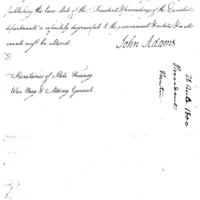 publishing the laws & acts of the President & proceedings of the Executive
departments is infinitely disgraceful to the government & nation & in all
events must be altered.
John Adams
Secretaries of State Treasury
War Navy & Attorney General.
President
1800